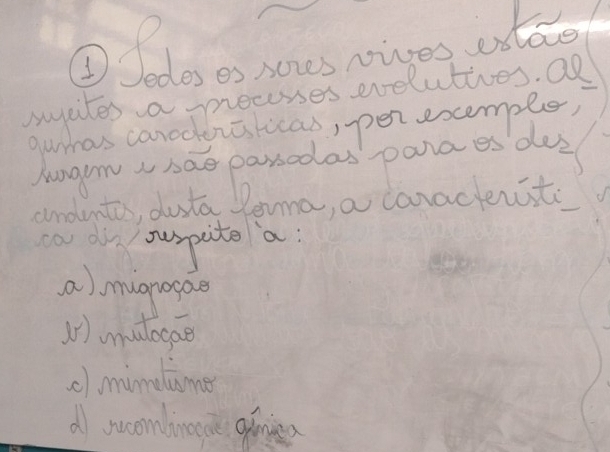 1 Todos os seres vivos estão
sujeitos a processos evolutivos. Al_
gumas características, por exemplo,
surgem e são passadas para os des_
cendentes, desta forma, a característi_
ca diz respeito à:
a) migração
b) mutação
c) mimetismo
d) recombinação gênica